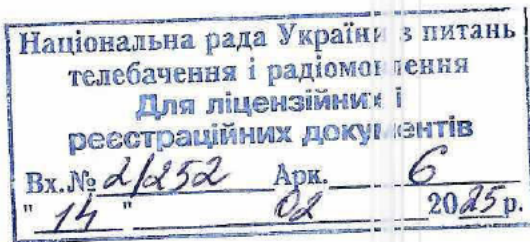 Національна рада України з питань
телебачення і радіомовлення
Для ліцензійних і
реєстраційних документів
Вх.№ 2/252 Арк. 6
"14" 02 2025р.